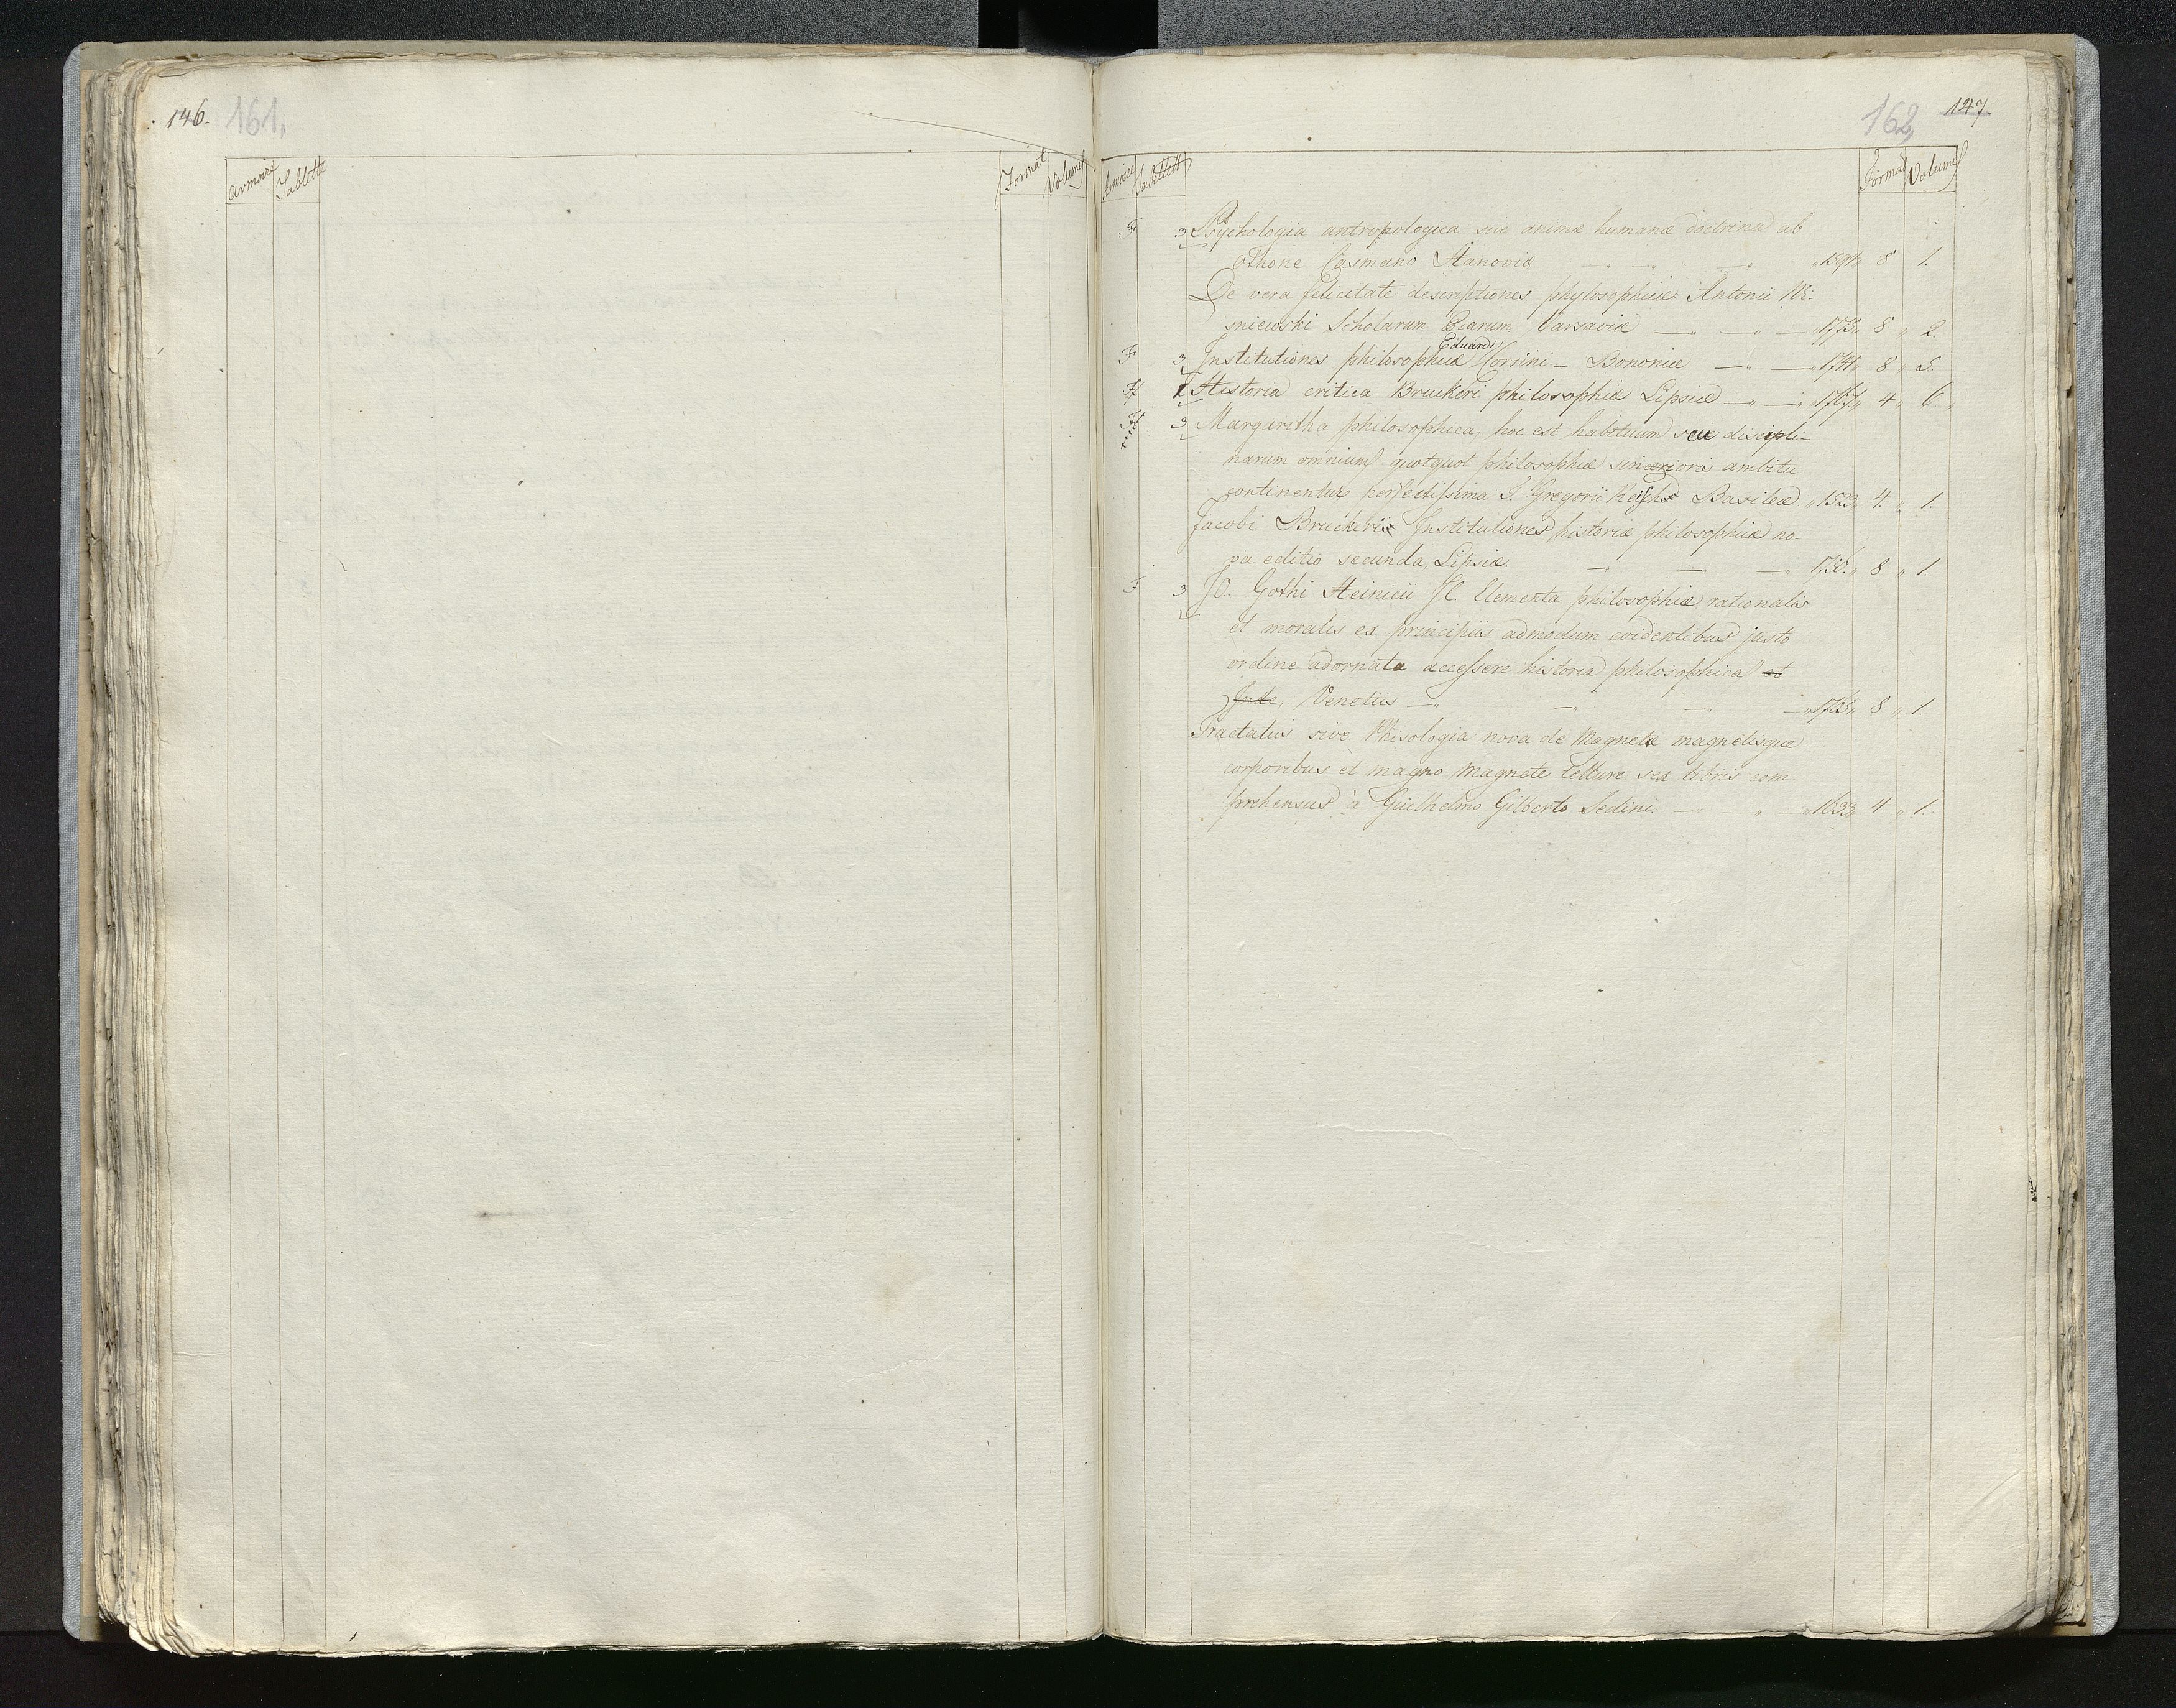 146. 161.
Armoire Tablette Format Volumes
162, 147
Armoire Tablette Format Volumes
F 3 Psychologia antropologica sive animæ humanæ doctrina ab
Othone Casmano Hanoviæ 1594 8 1.
De vera felicitate descriptiones phylosophicæ Antonii Wi-
sniewski Scholarum Piarum Varsaviæ 1775 8 2.
Eduardi
F 3 Institutiones philosophiæ Corsini - Bononiæ 1741 8 5.
H 1 Historia critica Bruckeri philosophiæ Lipsiæ 1767 4 6.
3 Margaritha philosophica, hoc est habituum seu discipli-
narum omnium quotquot philosophiæ sincerioris ambitu
continentur perfectissima F. Gregorii Reisch Basileæ. 1533 4. 1.
Jacobi Bruckeri Institutiones historiæ philosophiæ no-
va editio secunda, Lipsiæ. 8 1.
F 3 JO. Gothi Heinicii JC. Elementa philosophiæ rationalis
et moralis ex principiis admodum evidentibus justo
ordine adornata accessere historia philosophica et
Inde, Venetiis 8 1.
Tractatus sive Phisologia nova de Magnete magnetisque
corporibus et magno Magnete tellure sex libris com-
prehensus à Guilhelmo Gilberto Sedini. 1633 4 1.